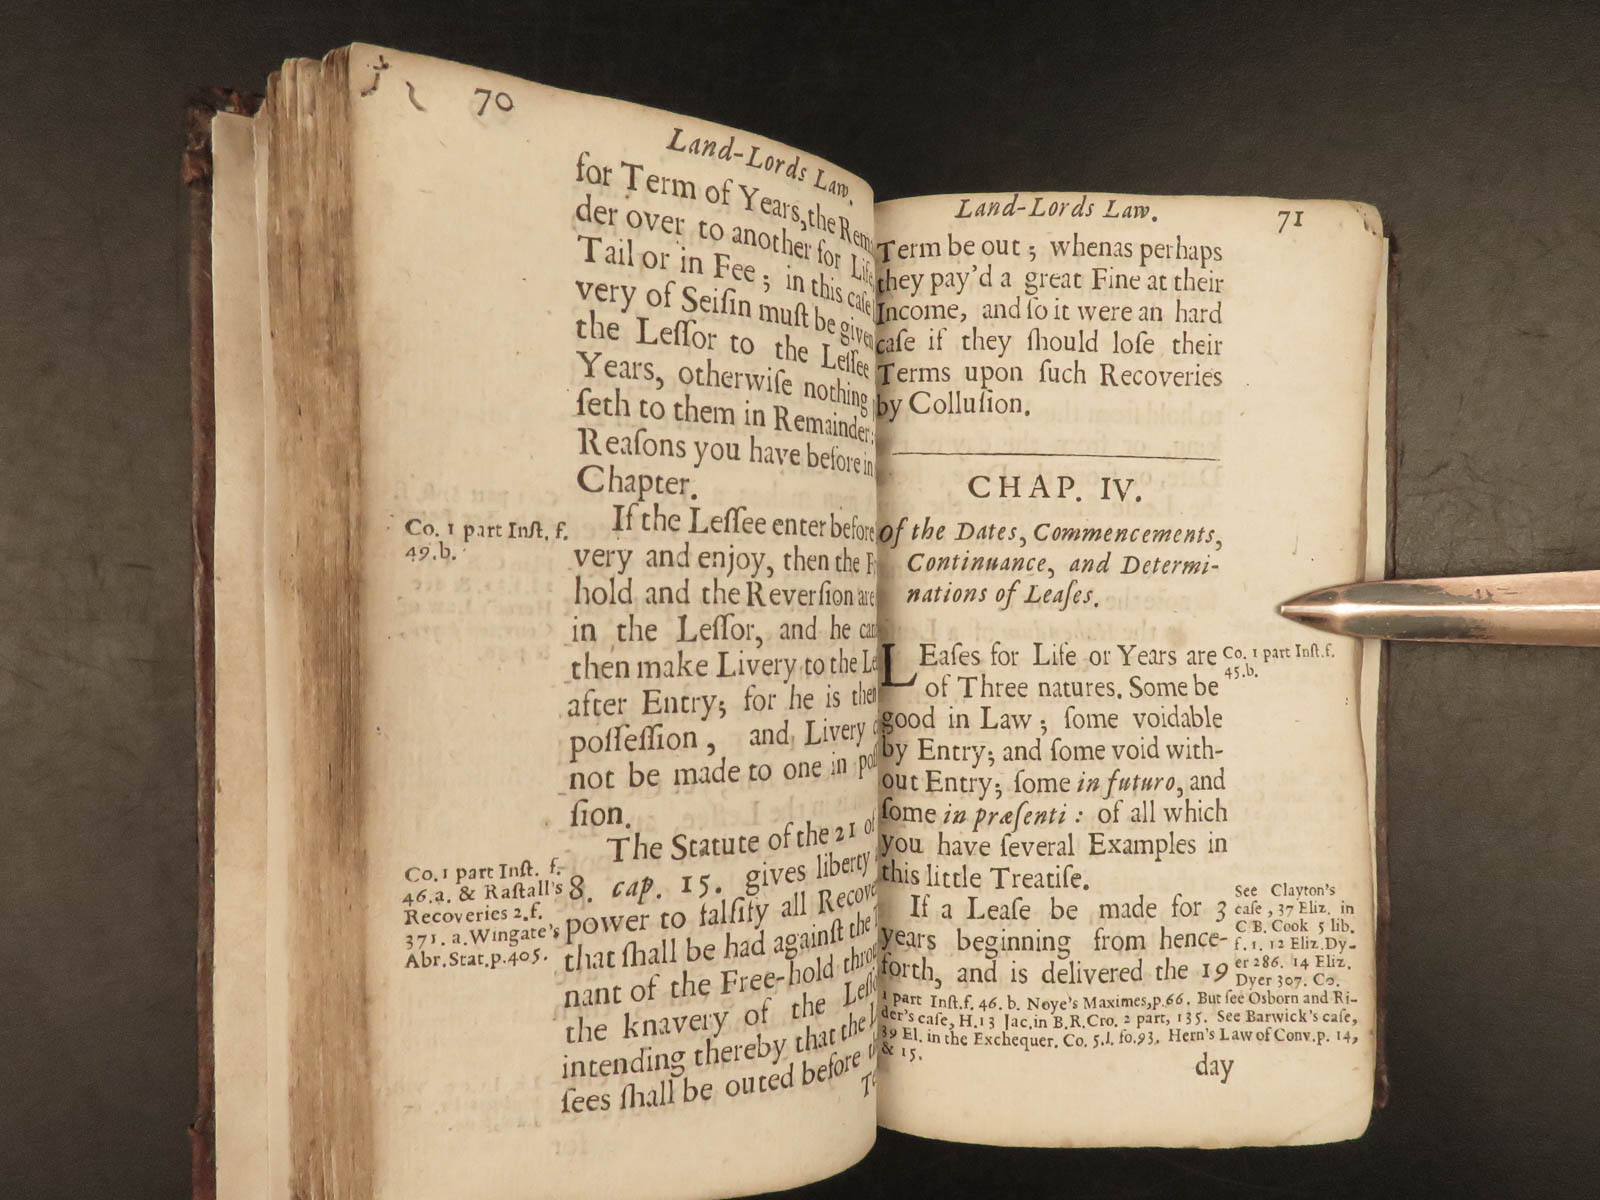 70
Land-Lords Law.
for Term of Years, the Rem
der over to another for Life
Tail or in Fee ; in this caſe
very of Seiſin muſt be given
the Leſſor to the Leſſee
Years, otherwiſe nothing
ſeth to them in Remainder:
Reaſons you have before in
Chapter.
If the Leſſee enter before
very and enjoy, then the F
hold and the Reverſion are
in the Leſſor, and he can
then make Livery to the Le
after Entry; for he is then
poſſeſſion, and Livery
not be made to one in poſ
ſion.
The Statute of the 21 of
8. cap. 15. gives liberty
power to falſify all Recove
that ſhall be had againſt the
nant of the Free-hold thro
the knavery of the Leſſ
intending thereby that the
ſees ſhall be outed before
Te
Co. 1 part Inſt. f.
49.b.
Co. 1 part Inſt. f.
46.a. & Raſtall's
Recoveries 2.f.
371. a. Wingate's
Abr.Stat.p.405.
Land-Lords Law.
71
Term be out ; whenas perhaps
they pay'd a great Fine at their
Income, and ſo it were an hard
caſe if they ſhould loſe their
Terms upon ſuch Recoveries
by Colluſion.
CHAP. IV.
of the Dates, Commencements,
Continuance, and Determi-
nations of Leaſes.
LEaſes for Life or Years are
of Three natures. Some be
good in Law ; ſome voidable
by Entry; and ſome void with-
out Entry; ſome in futuro, and
ſome in præſenti : of all which
you have ſeveral Examples in
this little Treatiſe.
If a Leaſe be made for 3
years beginning from hence-
forth, and is delivered the 19
Co. 1 part Inſt.f.
45.b.
See Clayton's
caſe, 37 Eliz. in
C B. Cook 5 lib.
f. 1. 12 Eliz.Dy-
er 286. 14 Eliz.
Dyer 307. Co.
1 part Inſt.f. 46. b. Noye's Maximes,p.66. But ſee Osborn and Ri-
der's caſe, H.13 Jac.in B.R.Cro. 2 part, 135. See Barwick's caſe,
39 El. in the Exchequer. Co. 5.l. fo.93. Hern's Law of Conv.p. 14,
& 15.
day